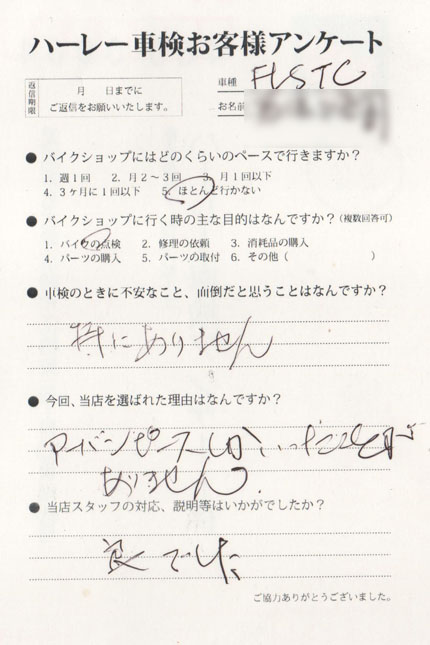 ハーレー車検お客様アンケート
返信期限
月 日までに
ご返信をお願いいたします。
車種 FLSTC
お名前
● バイクショップにはどのくらいのペースで行きますか？
1. 週1回 2. 月2〜3回 3. 月1回以下
4. 3ヶ月に1回以下 5. ほとんど行かない
● バイクショップに行く時の主な目的はなんですか？（複数回答可）
1. バイクの点検 2. 修理の依頼 3. 消耗品の購入
4. パーツの購入 5. パーツの取付 6. その他（ ）
● 車検のときに不安なこと、面倒だと思うことはなんですか？
特にありません
● 今回、当店を選ばれた理由はなんですか？
アーバンピースしか、いったことが
ありません。
● 当店スタッフの対応、説明等はいかがでしたか？
良くでした
ご協力ありがとうございました。